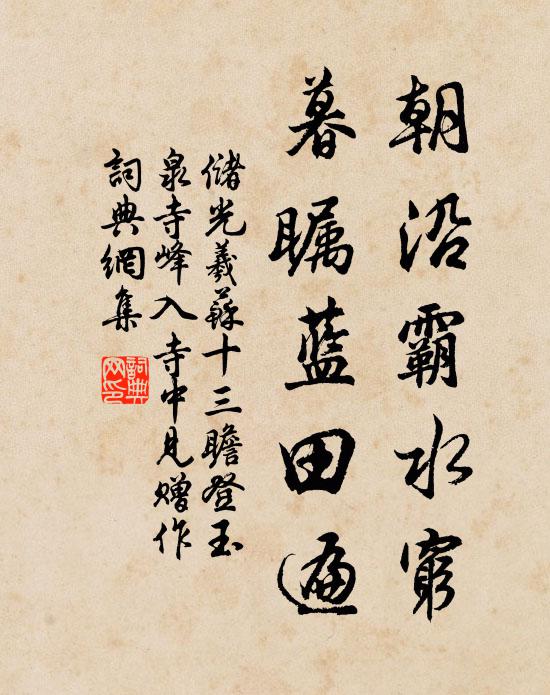 朝沿霸水窮
暮瞩藍田遍
儲光羲蘇十三瞻登玉
泉寺峰入寺中見贈作
詞典網集
詞典
网印